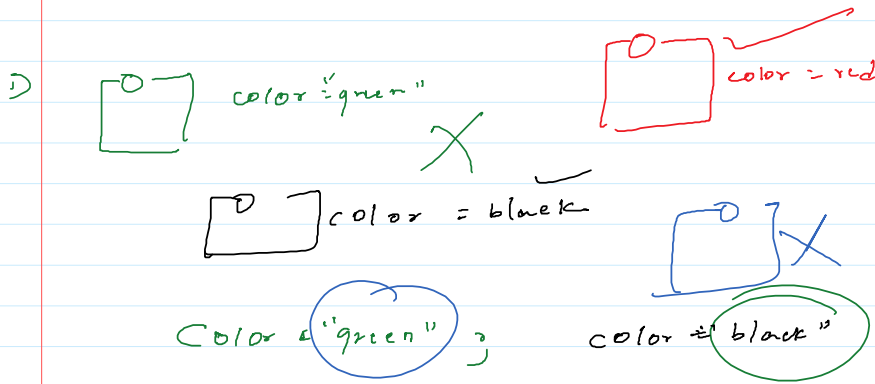 D color = "green"
color = red
color = black
color = "green" ;
color = "black"